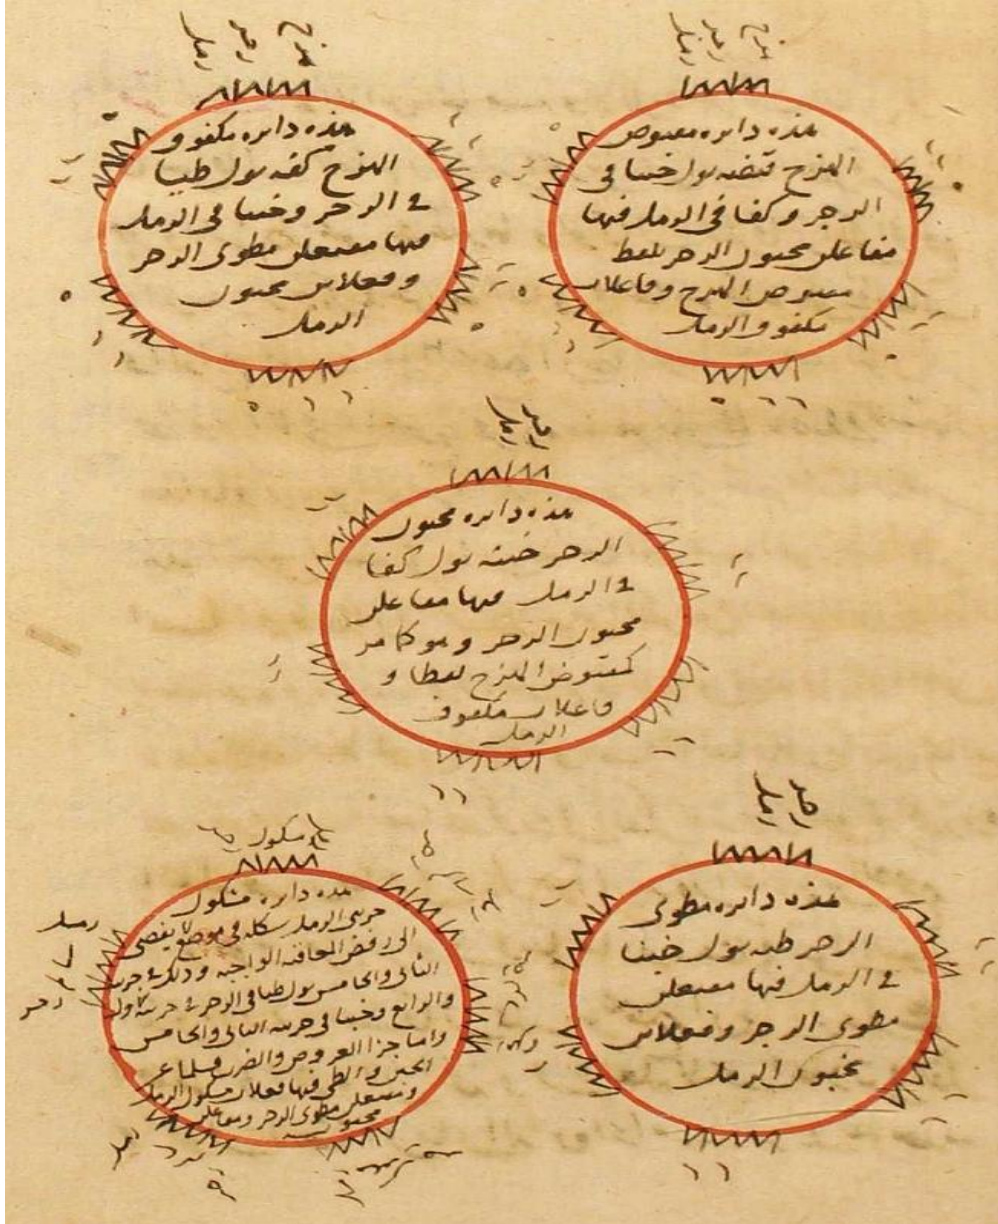 هزج رجز رمل
هذه دايره مقبوض
الهزج قبضه يول خبنا في
الرجز وكفا في الرمل فيها
مفاعلن مخبون الرجز بلفظ
مقبوض الهزج وفاعلات
مكفوف الرمل
هزج رجز رمل
هذه دايره مكفوف
الهزج كفه يول طيا
في الرجز وخبنا في الرمل
فيها مفتعلن مطوى الرجز
وفعلاتن مخبون
الرمل
رجز رمل
هذه دايره مخبون
الرجز خبنه يول كفا
في الرمل فيها مفاعلن
مخبون الرجز وهو كما مر
كمقبوض الهزج لفظا و
فاعلات مكفوف
الرمل
رجز رمل
هذه دايره مطوى
الرجز طيه يول خبنا
في الرمل فيها مفتعلن
مطوى الرجز وفعلاتن
مخبون الرمل
مشكول
هذه دايره مشكول
جزءى الرمل شكله في موضع لا يفضى
الى رفض المعاقبه الواجبه وذلك في جزء
الثانى والخامس يول طيا في الرجز في جزءيه الاول
والرابع وخبنا في جزءيه الثانى والخامس
واما جزءا العروض والضرب فسلما عن
الخبن والطى فيها فعلات مشكول الرمل
ومفتعلن مطوى الرجز ومفاعلن
مخبونه
رمل
رجز